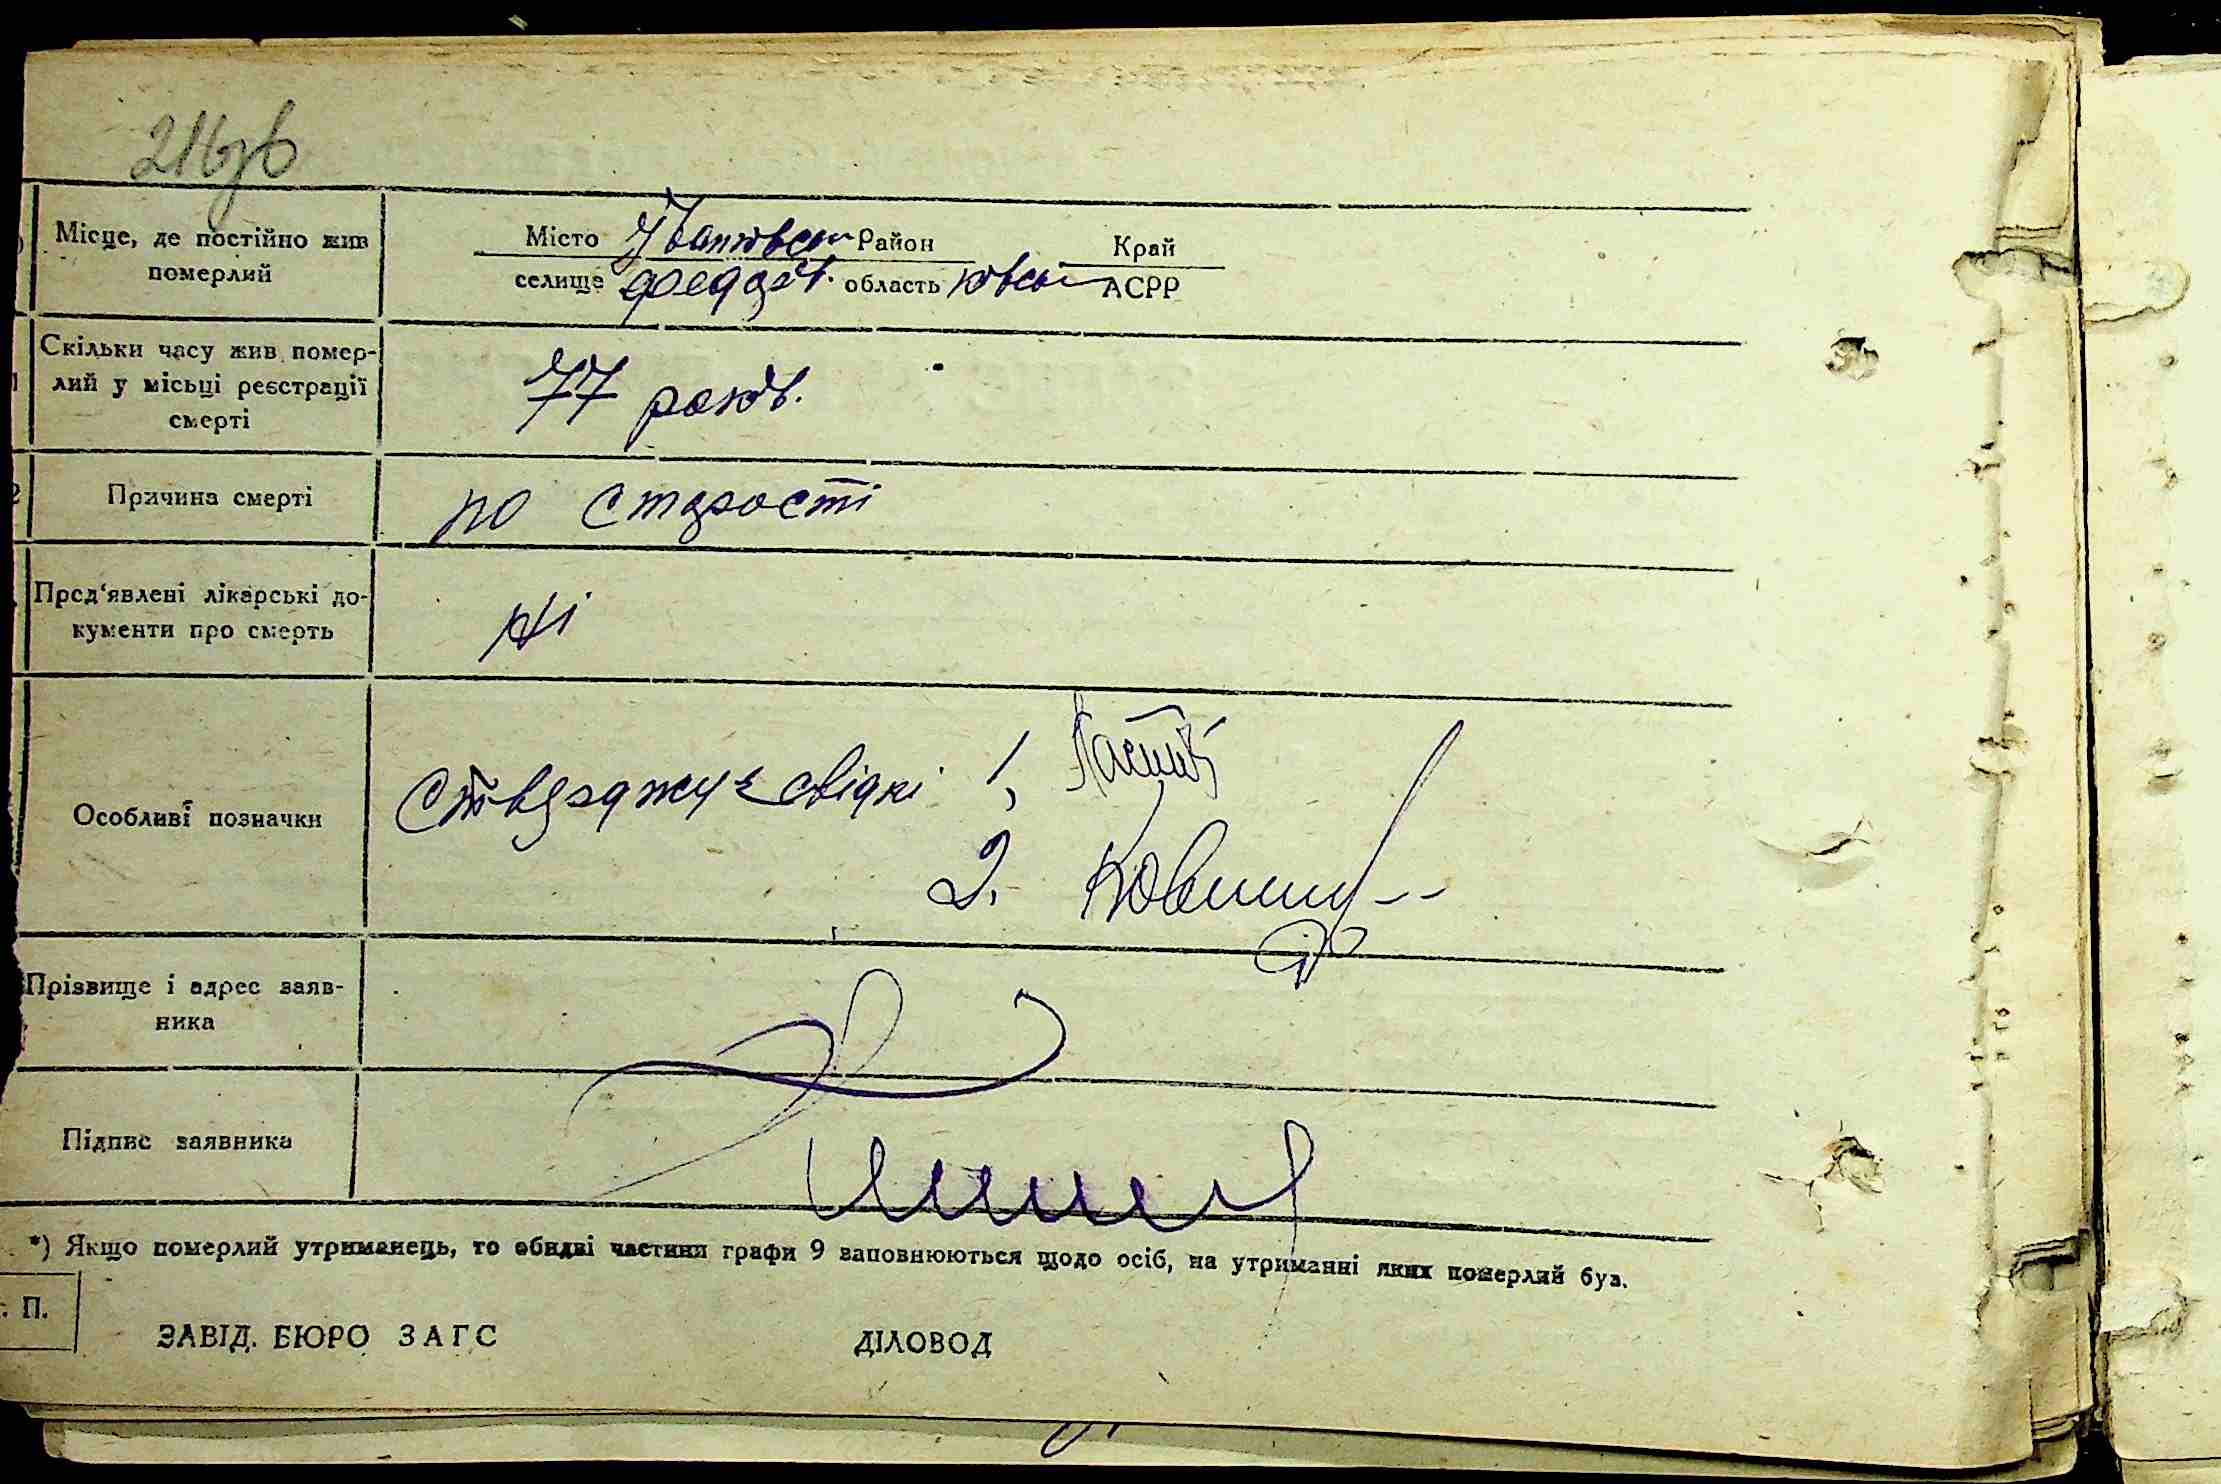 216зв
Місце, де постійно жив
померлий
Місто Район Край
селище область АСРР
Скільки часу жив помер-
лий у місьці реєстрації
смерті
77 років.
Причина смерті
по старості
Пред'явлені лікарські до-
кументи про смерть
ні
Особливі позначки
стверджує свідкі 1,
2.
Прізвище і адрес заяв-
ника
Підпис заявника
*) Якщо померлий утриманець, то обидві частини графи 9 заповнюються щодо осіб, на утриманні яких померлий був.
. П.
ЗАВІД. БЮРО ЗАГС
ДІЛОВОД